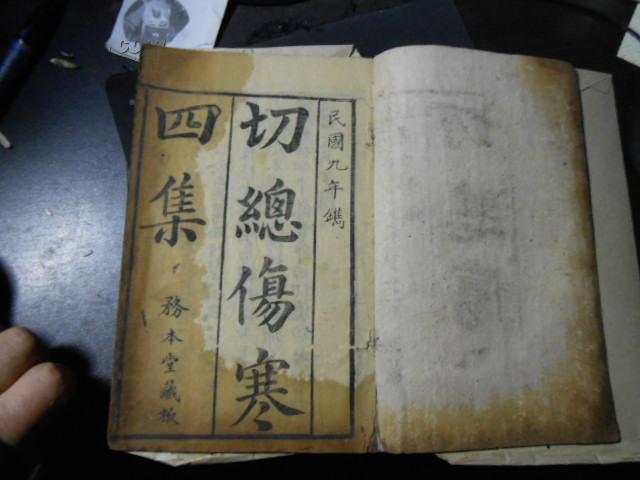 民國九年鐫
切總傷寒
四集
務本堂藏板